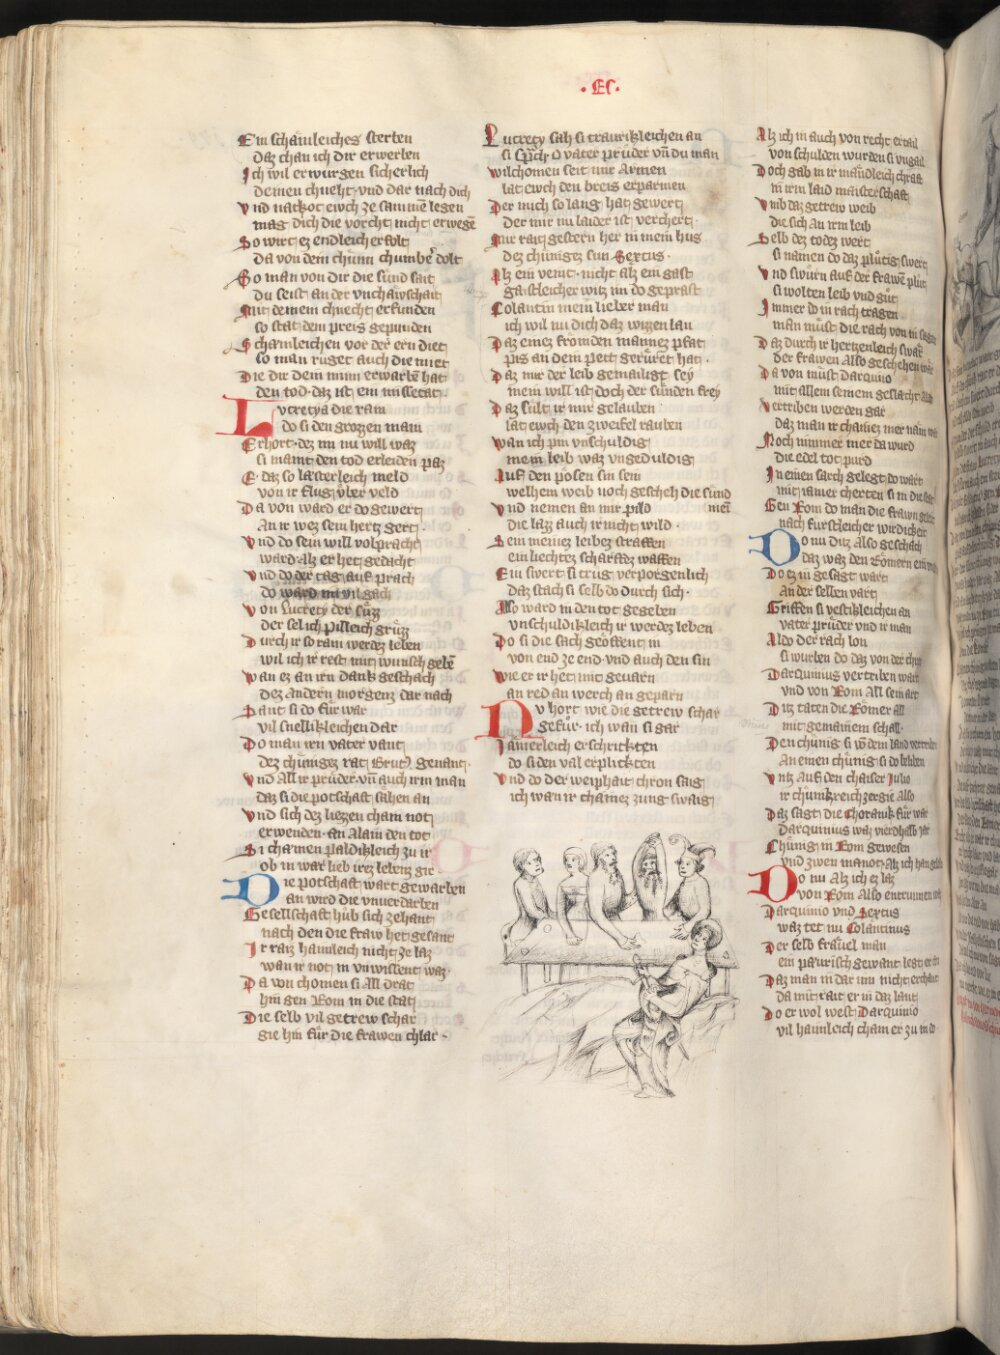 · EC ·
Ein schamleiches sterben
Daz chan ich dir erwerben
Ich wil erwurgen sicherlich
deinen chneht · vnd dar nach dich
vnd nackot ewch ze sammē legen
mag dich die vorcht nicht erwegē
So wirt ez endleich erfolt
da von dem chunn chumber dolt
So man von dir die sund sait
du seist an der vnchawschait
Mit deinem chnecht erfunden
so stat dem preis gepunden
Schamleichen vor der ern diet
so man ruget auch die miet
Die dir dein minn erwarbē hat
den tod · daz ist ein missetat ·
Lucretya die rain
do si den grozzen main
Erhort · dez im nu will waz
si maint den tod erleiden paz
E · daz so lasterleich meld
von ir flug vber veld
Da von ward er do gewert
An ir wez sein hertz gert ·
vnd do sein will volpracht
ward · alz er het gedacht
vnd do der tag auf prach
do ward im vil gach
von Lucrety der suzz
der selich pilleich gruzz
Durch ir so rain werdez leben
wil ich ir rest mit wunsch gebē
wan ez an irn dank geschach
dez andern morgenz dar nach
Sant si do fur war
vil snellikleichen dar
Do man irn vater vant
dez chunigez rat Brut9 genant ·
vnd All ir pruder · vn̄ auch irn man
daz si die potschaft sahen an
vnd sich dez liezzen cham not
erwenden · an Alain den tot
Si chamen paldikleich zu ir
ob in war lieb irez lebenz gir
Die potschaft wart gewarben
an wird die vnuerdarben
Gesellschaft hub sich zehant
nach den die fraw het gesant
Ir raiz hainleich nicht ze laz
wan ir not in vnwissent waz ·
Da von chomen si All drat
hin gen Rom in die stat
Die selb vil getrew schar
gie hin fur die frawen chlar ·
Lucrety sah si traurikleichen an
si sprch O vater pruder vn̄ du man
wilchomen seit mir Armen
lat ewch den breis erparmen
Der mich so lang hat gewert
Der mir nu laider ist verchert ·
Mir rait gestern her in mein hus
dez chunigez sun Sextus ·
Alz ein veint · nicht alz ein gast
gaistleicher witz im do geprast
Colantin mein lieber man
ich wil nu dich daz wizzen lan
Daz einez fromden mannez pfat
pis an dem pett geruret hat ·
Daz mir der leib gemailigt sey
mein will ist doch der sunden frey
Daz sult ir mir gelauben
lat ewch den zweifel rauben
wan ich pin vnschuldig
mein leib waz vngeduldig
Auf den posen sin sein
welhem weib noch gescheh die sund mein
vnd nemen an mir pild
die lazz auch ir nicht wild ·
Sein meinez leibez straffen
ein liechtez scharffez waffen
Ein swert si trug verporgenlich
daz stach si selb do durch sich ·
Also ward in den tot gegeben
vnschuldikleich ir werdez leben
Do si die sach geoffent in
von end ze end · vnd auch den sin
wie er ir het mit geuarn
an red an werch an geparn
Nv hort wie die getrew schar
gefur · ich wan si gar
Jamerleich erschrickten
do si den val erplickten
vnd do der weiphait chron saig
ich wan ir chainez zung swaig
Alz ich in auch von recht ertail
von schulden wurden si vngail
Doch gab in ir mandleich chraft
in irm laid maisterschaft
vmb daz getrew weib
die sich An irm leib
Selb dez todez wert
si namen do daz plutig swert
vnd swurn auf der frawē plut
si wolten leib vnd gut
Immer do in rach tragen
man must die rach von in sagen
Daz durch ir hertzenleich swar
der frawen Also geschehen war
Da von must Darquino
mit allem seinem geslacht
vertriben werden gar
daz man ir chainez mer nam war
Noch nimmer mer da wurd
die edel tot purd
In einen sarch gelegt do wart
mit iamer cherten si in die
Gen Rom do man die frawn
nach furstleicher wirdickeit
Do nu ditz Also geschach
daz waz den Romern
Do ez in gesagt wart
An der selben vart
Griffen si vestikleichen an
vater pruder vnd ir man
Aldo der rach lon
si wurben do daz von der
Darquinius vertriben wart
vnd von Rom All sein art
Ditz taten die Romer all
mit gemainem schall ·
Den chunig si vō dem land vertriben
An einen chunig si do beliben
vntz Auf den chaiser Julio
ir chunkreich zergie Also
Daz sagt die Choranik fur war
Darquinius waz vierdhalb jar
Chunig in Rom gewesen
vnd zwen manot · alz ich han
Do nu Alz ich ez laz
von Rom Also entrunnen
Darquinio vnd Sextus
waz tet nu Colantinus
Der selb frauel man
ein pawrisch gewant legt er an
Daz man in dar inn nicht erchant
da mit rait er in daz lant
Do er wol west Darquinio
vil hainleich cham er zu im do